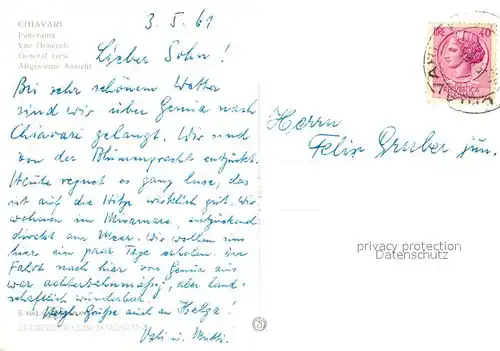 CHIAVARI
Panorama
Vue Générale
General view
Allgemeine Ansicht
3. 5. 61
Lieber Sohn!
Bei sehr schönem Wetter
sind wir über Genua nach
Chiavari gelangt. Wir sind
von der Blumenpracht entzückt.
Heute regnet es ganz leise, das
ist auf die Hitze wirklich gut. Wir
wohnen im Miramare, entzückend
direkt am Meer. Wir wollen uns
hier ein paar Tage erholen. Die
Fahrt nach hier von Genua aus
war achterbahnmäßig, aber land-
schaftlich wunderbar.
Grüße auch an Helga!
Vati u. Mutti.
LIRE 40
Herrn
Felix Gruber jun.
privacy protection
Datenschutz